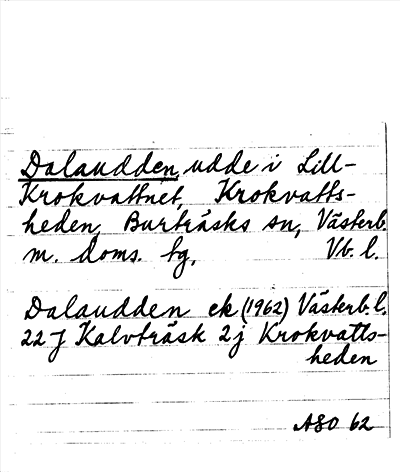 Dalaudden, udde i Lill-
Krokvattnet, Krokvatts-
heden, Burträsks sn, Västerb.
m. doms. tg, Vb. l.
Dalaudden ek (1962) Västerb. l.
22 J Kalvträsk 2j Krokvatts-
heden
ASO 62